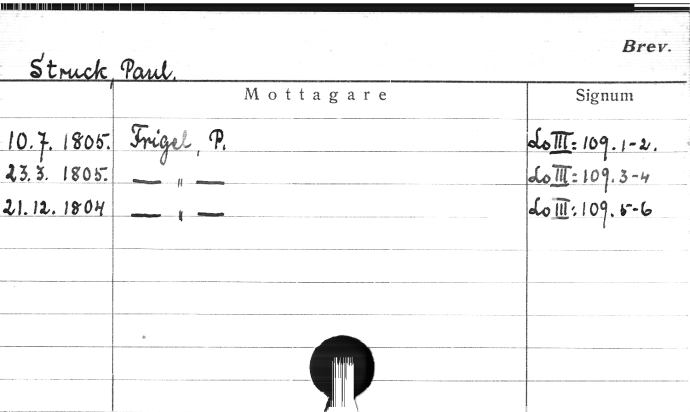 Brev.
Struck, Paul.
Mottagare Signum
10.7. 1805. Frigel, P. Lo III: 109. 1-2.
23.3. 1805. — " — Lo III: 109. 3-4
21.12. 1804 — " — Lo III: 109. 5-6